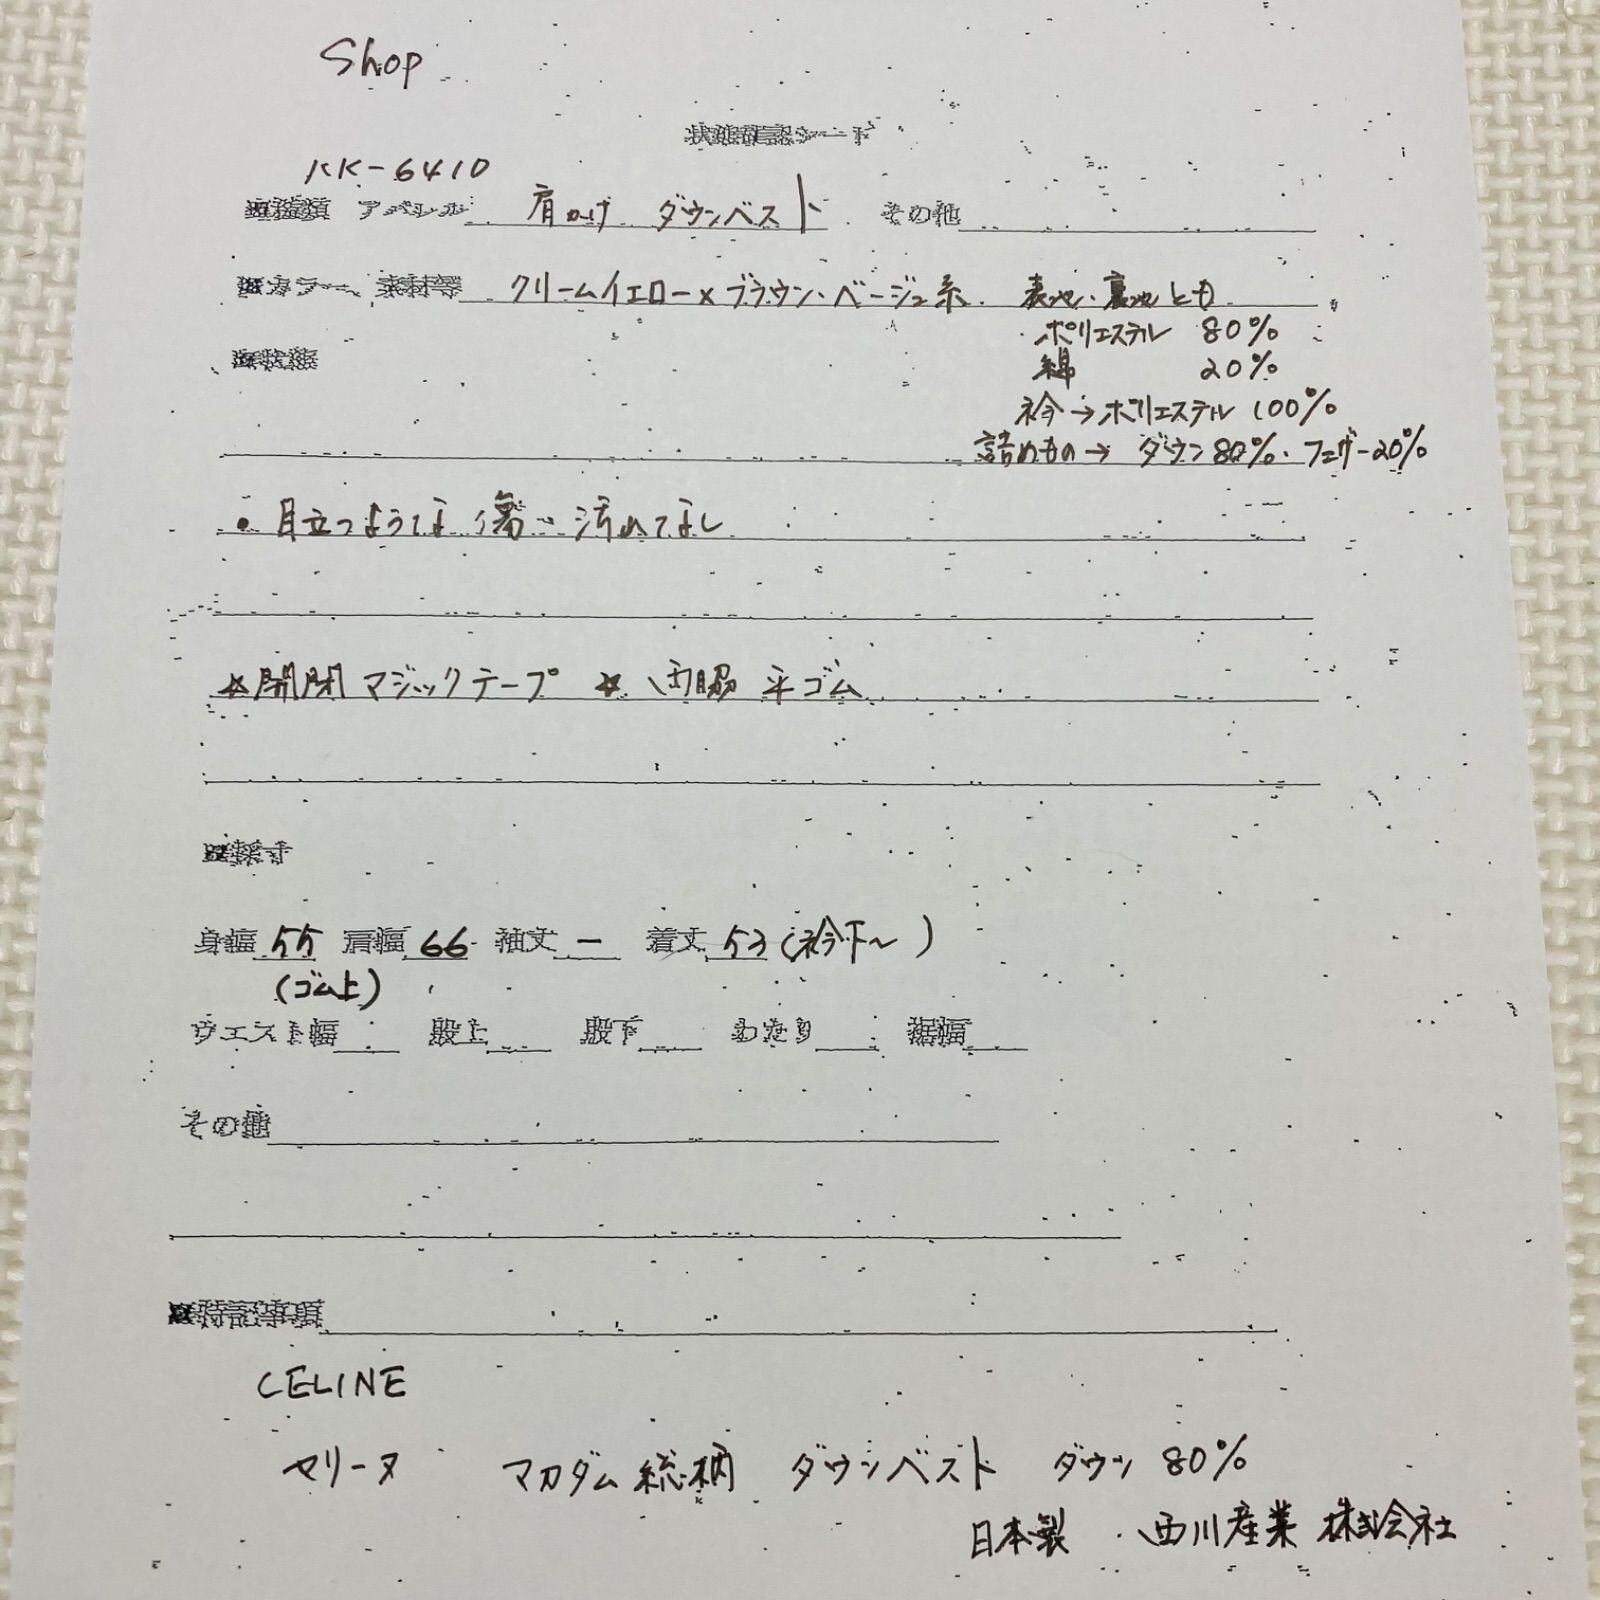 Shop
状態確認シート
KK-6410
■種類 アパレル 肩かけ ダウンベスト その他
■カラー、素材等 クリームイエロー×ブラウン・ベージュ系 表地、裏地とも
ポリエステル 80%
■状態
綿 20%
衿→ポリエステル 100%
詰めもの→ ダウン 80%・フェザー20%
• 目立つような傷・汚れなし
☆開閉 マジックテープ ☆両脇 平ゴム
■採寸
身幅 55 肩幅 66 袖丈 ー 着丈 53 (衿下〜)
(ゴム上)
ウエスト幅 股上 股下 わたり 裾幅
その他
■特記事項
CELINE
セリーヌ マカダム総柄 ダウンベスト ダウン 80%
日本製 西川産業株式会社